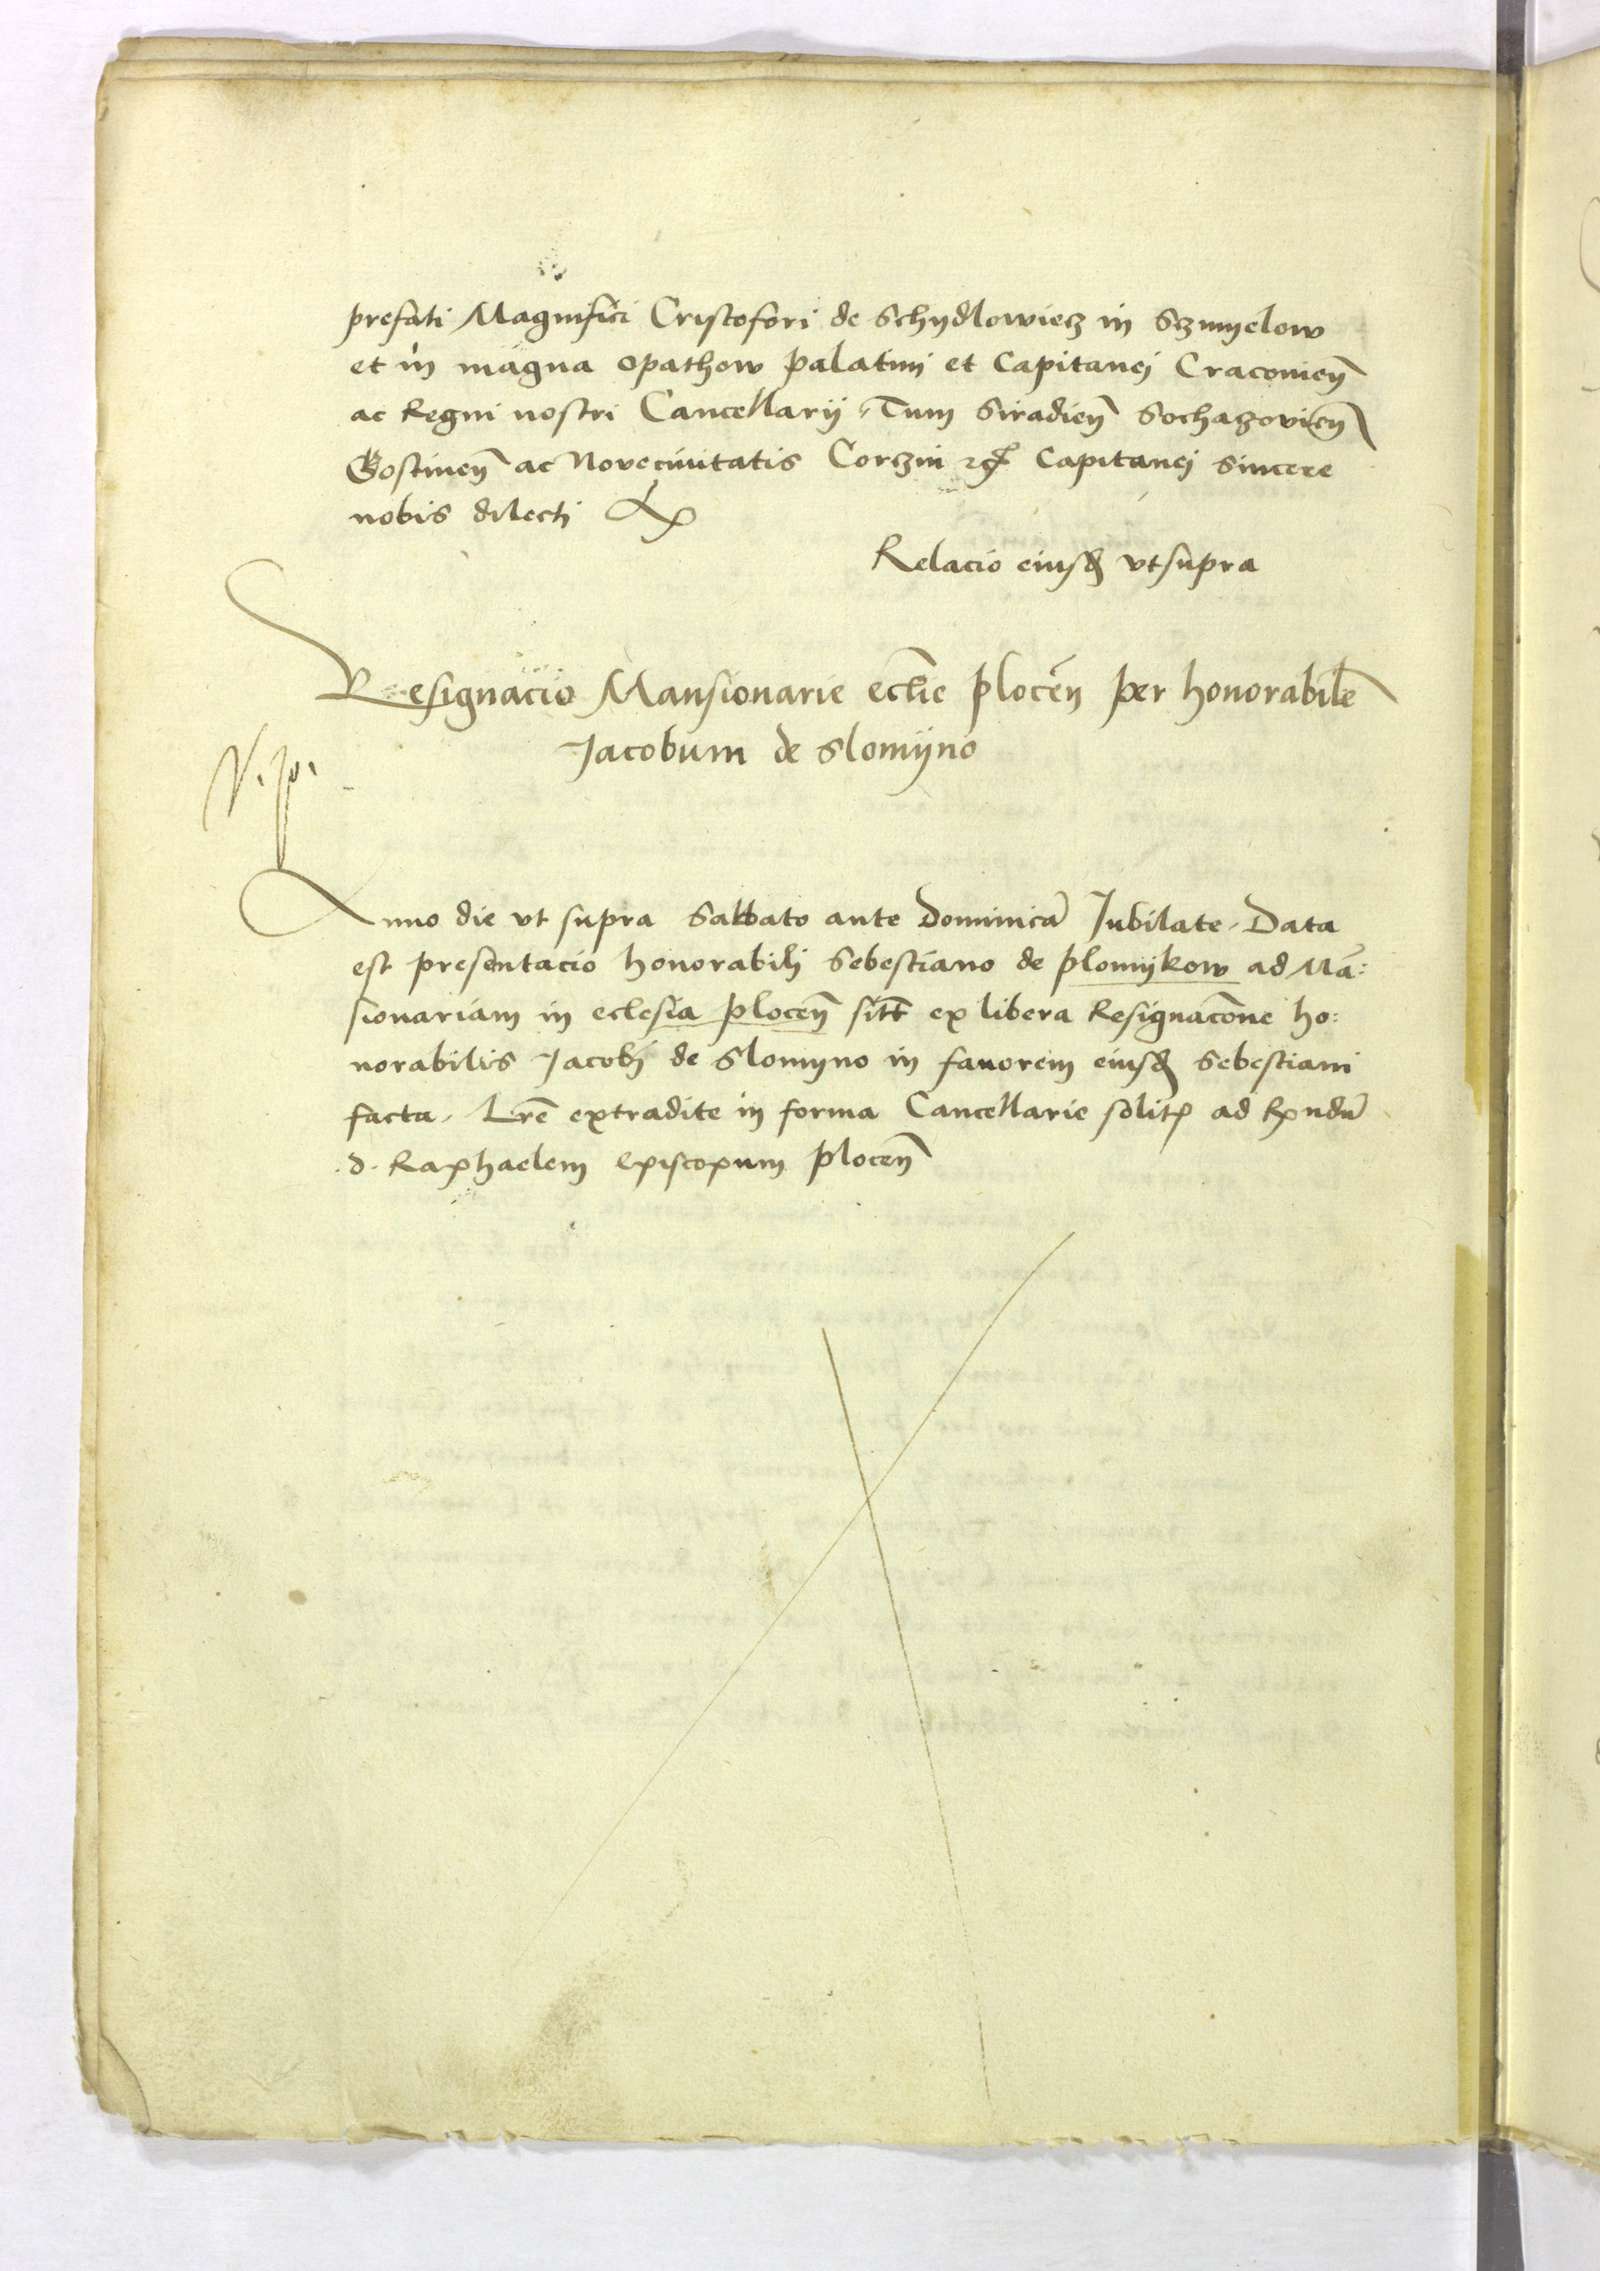 prefati Magnifici Cristofori de Schydlowiecz in Szmyelow
et in magna Opathow palatini et Capitanei Cracovien̄
ac Regni nostri Cancellarii, Tum Siradien̄ Sochazovien̄
Gostinen̄ ac Novecivitatis Corczin Capitanei sincere
nobis dilecti
Relacio eiusd̄ vt supra
Resignacio Mansionarie eccl̄ie plocen̄ per honorabile̅
Jacobum de Slomyno
Anno die vt supra Sabbato ante Dominicā Jubilate, Data
est presentacio honorabilj Sebestiano de plomykow ad Mā:
sionariam in eclesia plocen̄ sit̄t ex libera Resignacōne ho:
norabilis Jacobj de Slomyno in fauorem eiusd̄ Sebestiani
facta, Lr̄e extradite in forma Cancellarie solit̄ ad Rx̄ndū
.d. Raphaelem Episcopum plocen̄